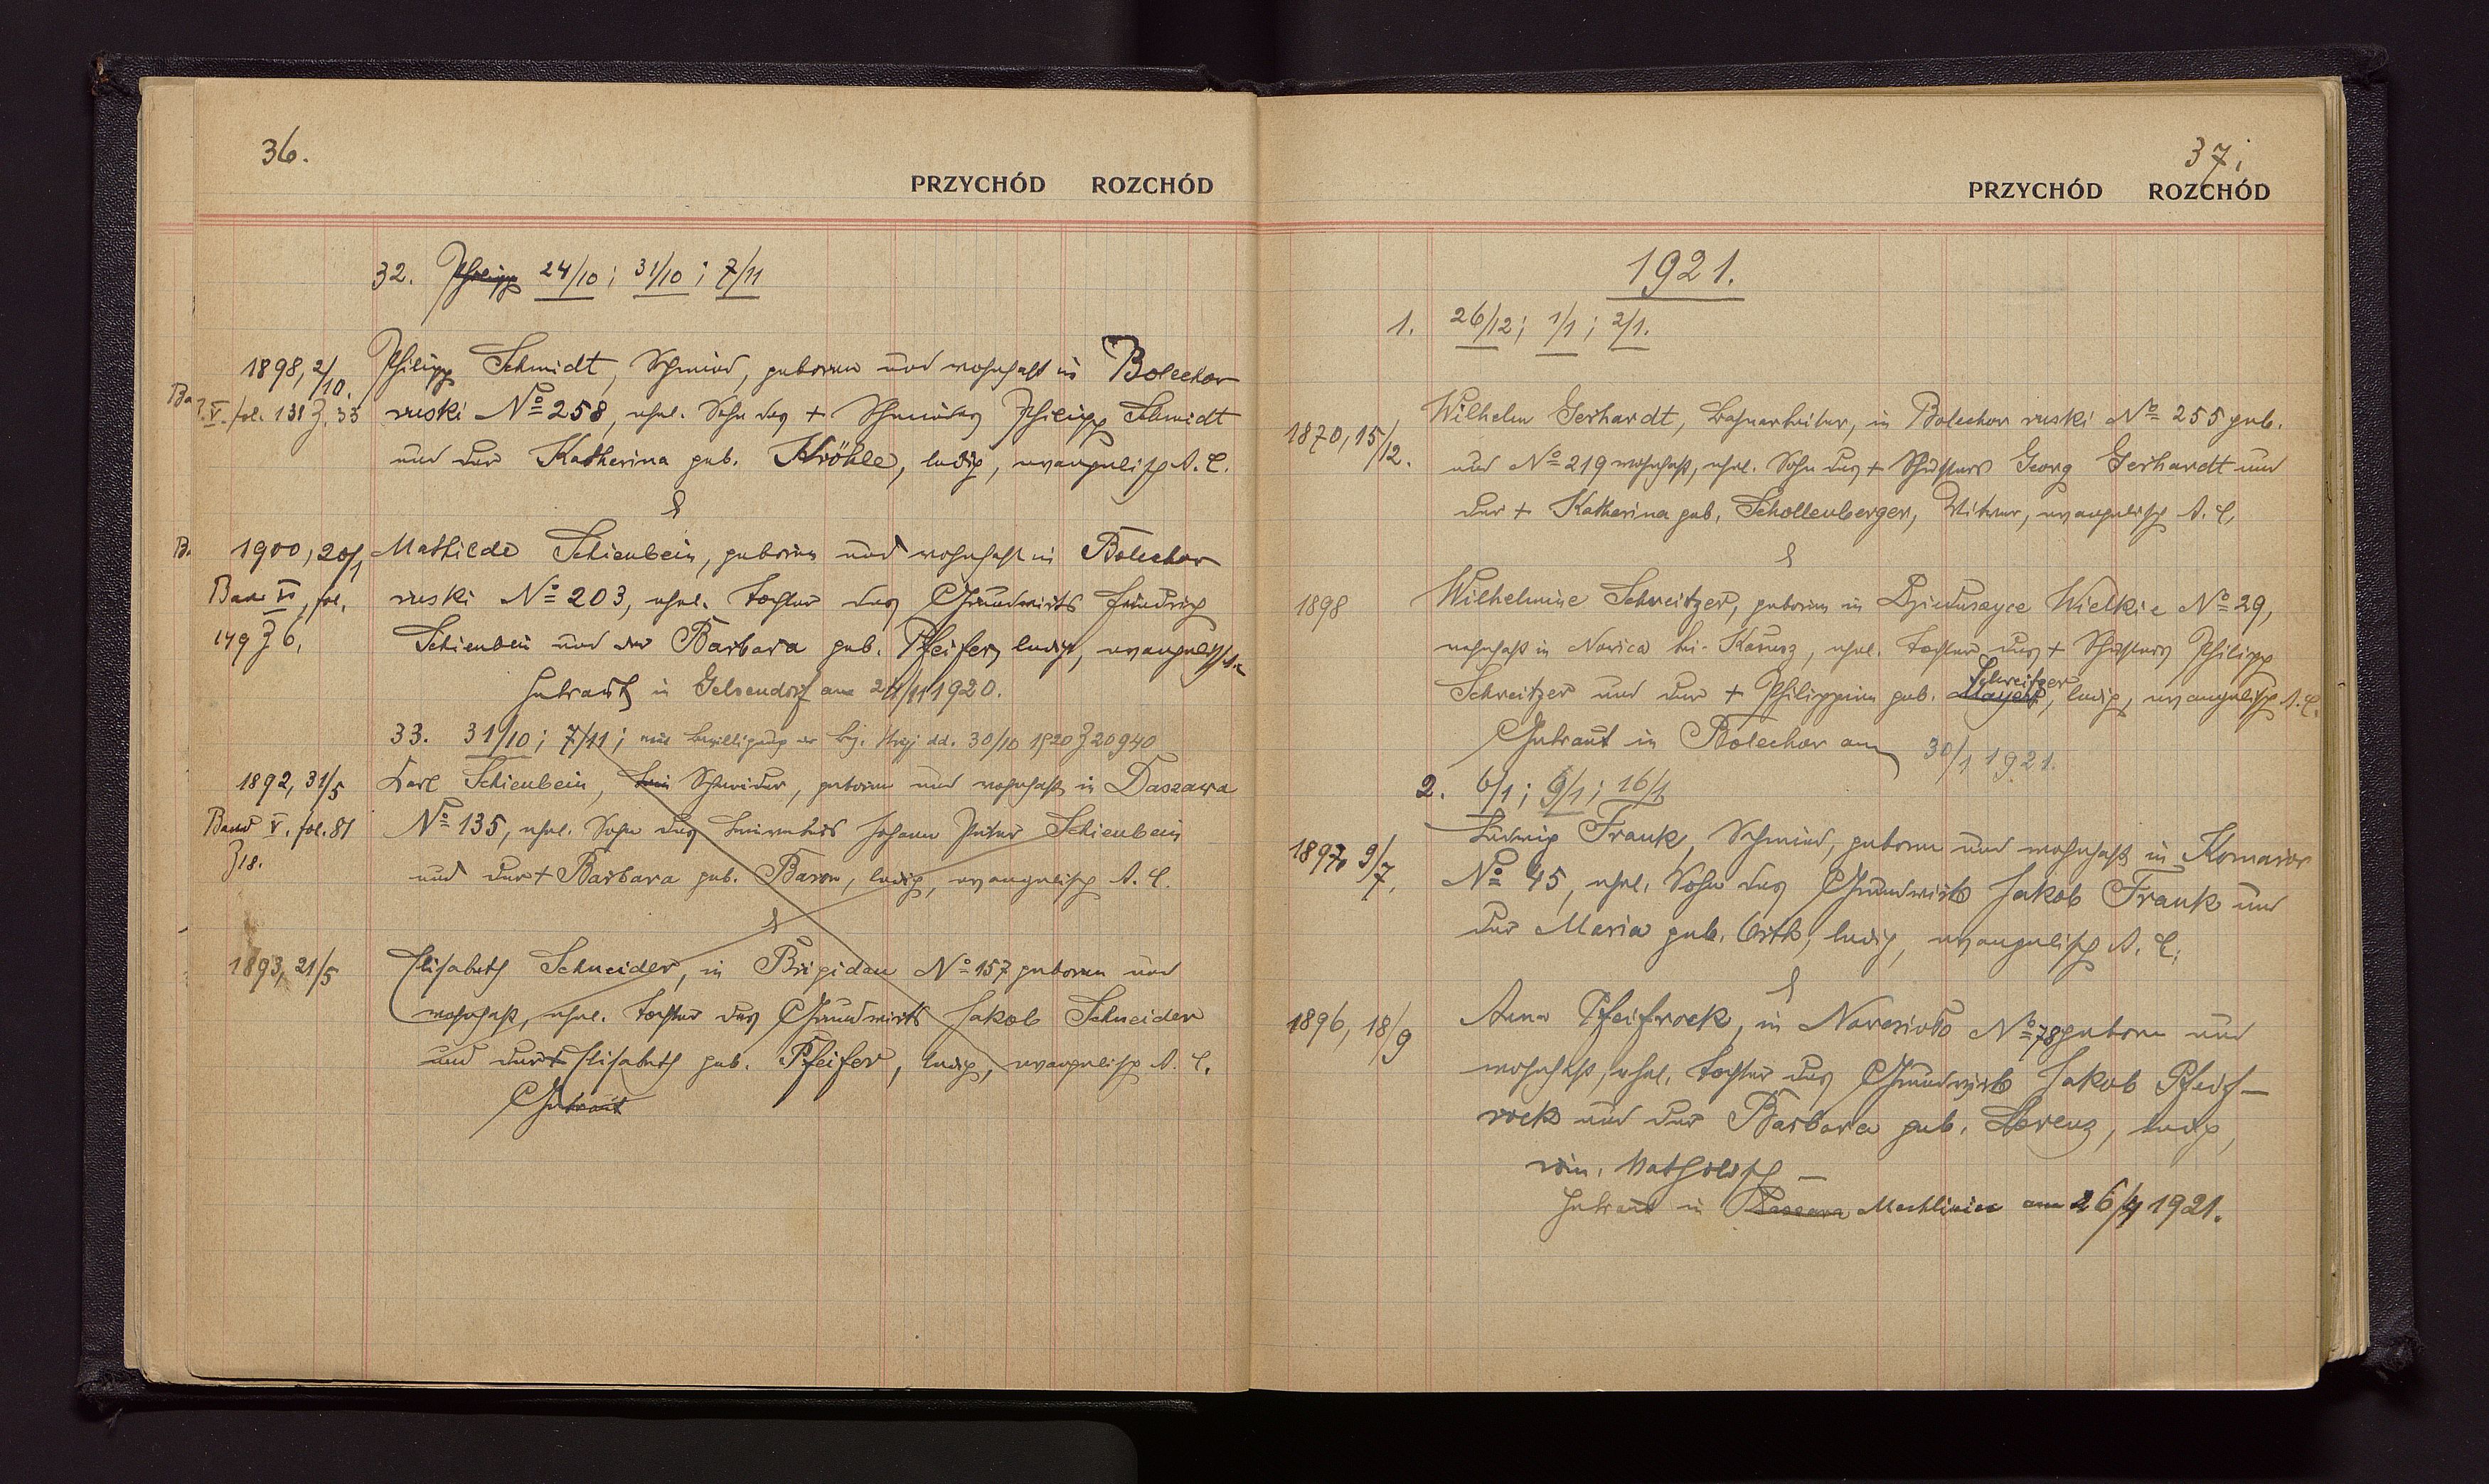 36.
PRZYCHÓD ROZCHÓD
32. Philipp 24/10; 31/10; 7/11
1898, 2/10. Philipp Schmidt, Schmied, geboren und wohnhaft in Bolechow
V. fol. 131 Z. 33 ruski No 258, ehel. Sohn des + Schmiedes Philipp Schmidt
und der Katherina geb. Kröhle, ledig, evangelisch A. C.
&
1900, 20/1 Mathilde Schienbein, geboren und wohnhaft in Bolechow
Band VI, fol. ruski No 203, ehel. Tochter des Grundwirts Friedrich
149 Z 6. Schienbein und der Barbara geb. Pfeifer, ledig, evangelisch A.C.
Getraut in Gelsendorf am 24/11 1920.
33. 31/10; 7/11; mit Bewilligung der Bzh. Stryj dd. 30/10 1920 Z 20940
1892, 31/5 Karl Schienbein, Schneider, geboren und wohnhaft in Daszawa
Band V. fol. 81 No 135, ehel. Sohn des Johann Peter Schienbein
Z 18. und der + Barbara geb. Baron, ledig, evangelisch A. C.
&
1893, 21/5 Elisabeth Schneider, in Brigidau No 157 geboren und
wohnhaft, ehel. Tochter des Grundwirts Jakob Schneider
und der + Elisabeth geb. Pfeifer, ledig, evangelisch A. C.
Getraut
37.
PRZYCHÓD ROZCHÓD
1921.
1. 26/12; 1/1; 2/1.
1870, 15/12. Wilhelm Gerhardt, Bahnarbeiter, in Bolechow ruski No 255 geb.
und No 219 wohnhaft, ehel. Sohn des + Schusters Georg Gerhardt und
der + Katharina geb. Schollenberger, Witwer, evangelisch A. C.
&
1898 Wilhelmine Schweitzer, geboren in Wielkie No 29,
wohnhaft in Nowica bei Kałusz, ehel. Tochter des + Schusters Philipp
Schweitzer und der + Philippina geb. Mayer Schweitzer, ledig, evangelisch A. C.
Getraut in Bolechow am 30/1 1921.
2. 6/1; 9/1; 16/1
1897, 9/7. Ludwig Frank, Schmied, geboren und wohnhaft in Komarow
No 45, ehel. Sohn des Grundwirts Jakob Frank und
der Maria geb. Orth, ledig, evangelisch A. C.
&
1896, 18/9 Anna Pfeifrock, in No 78 geboren und
wohnhaft, ehel. Tochter des Grundwirts Jakob Pfeif-
rock und der Barbara geb. Lorenz, ledig,
röm. katholisch —
Getraut in am 26/4 1921.